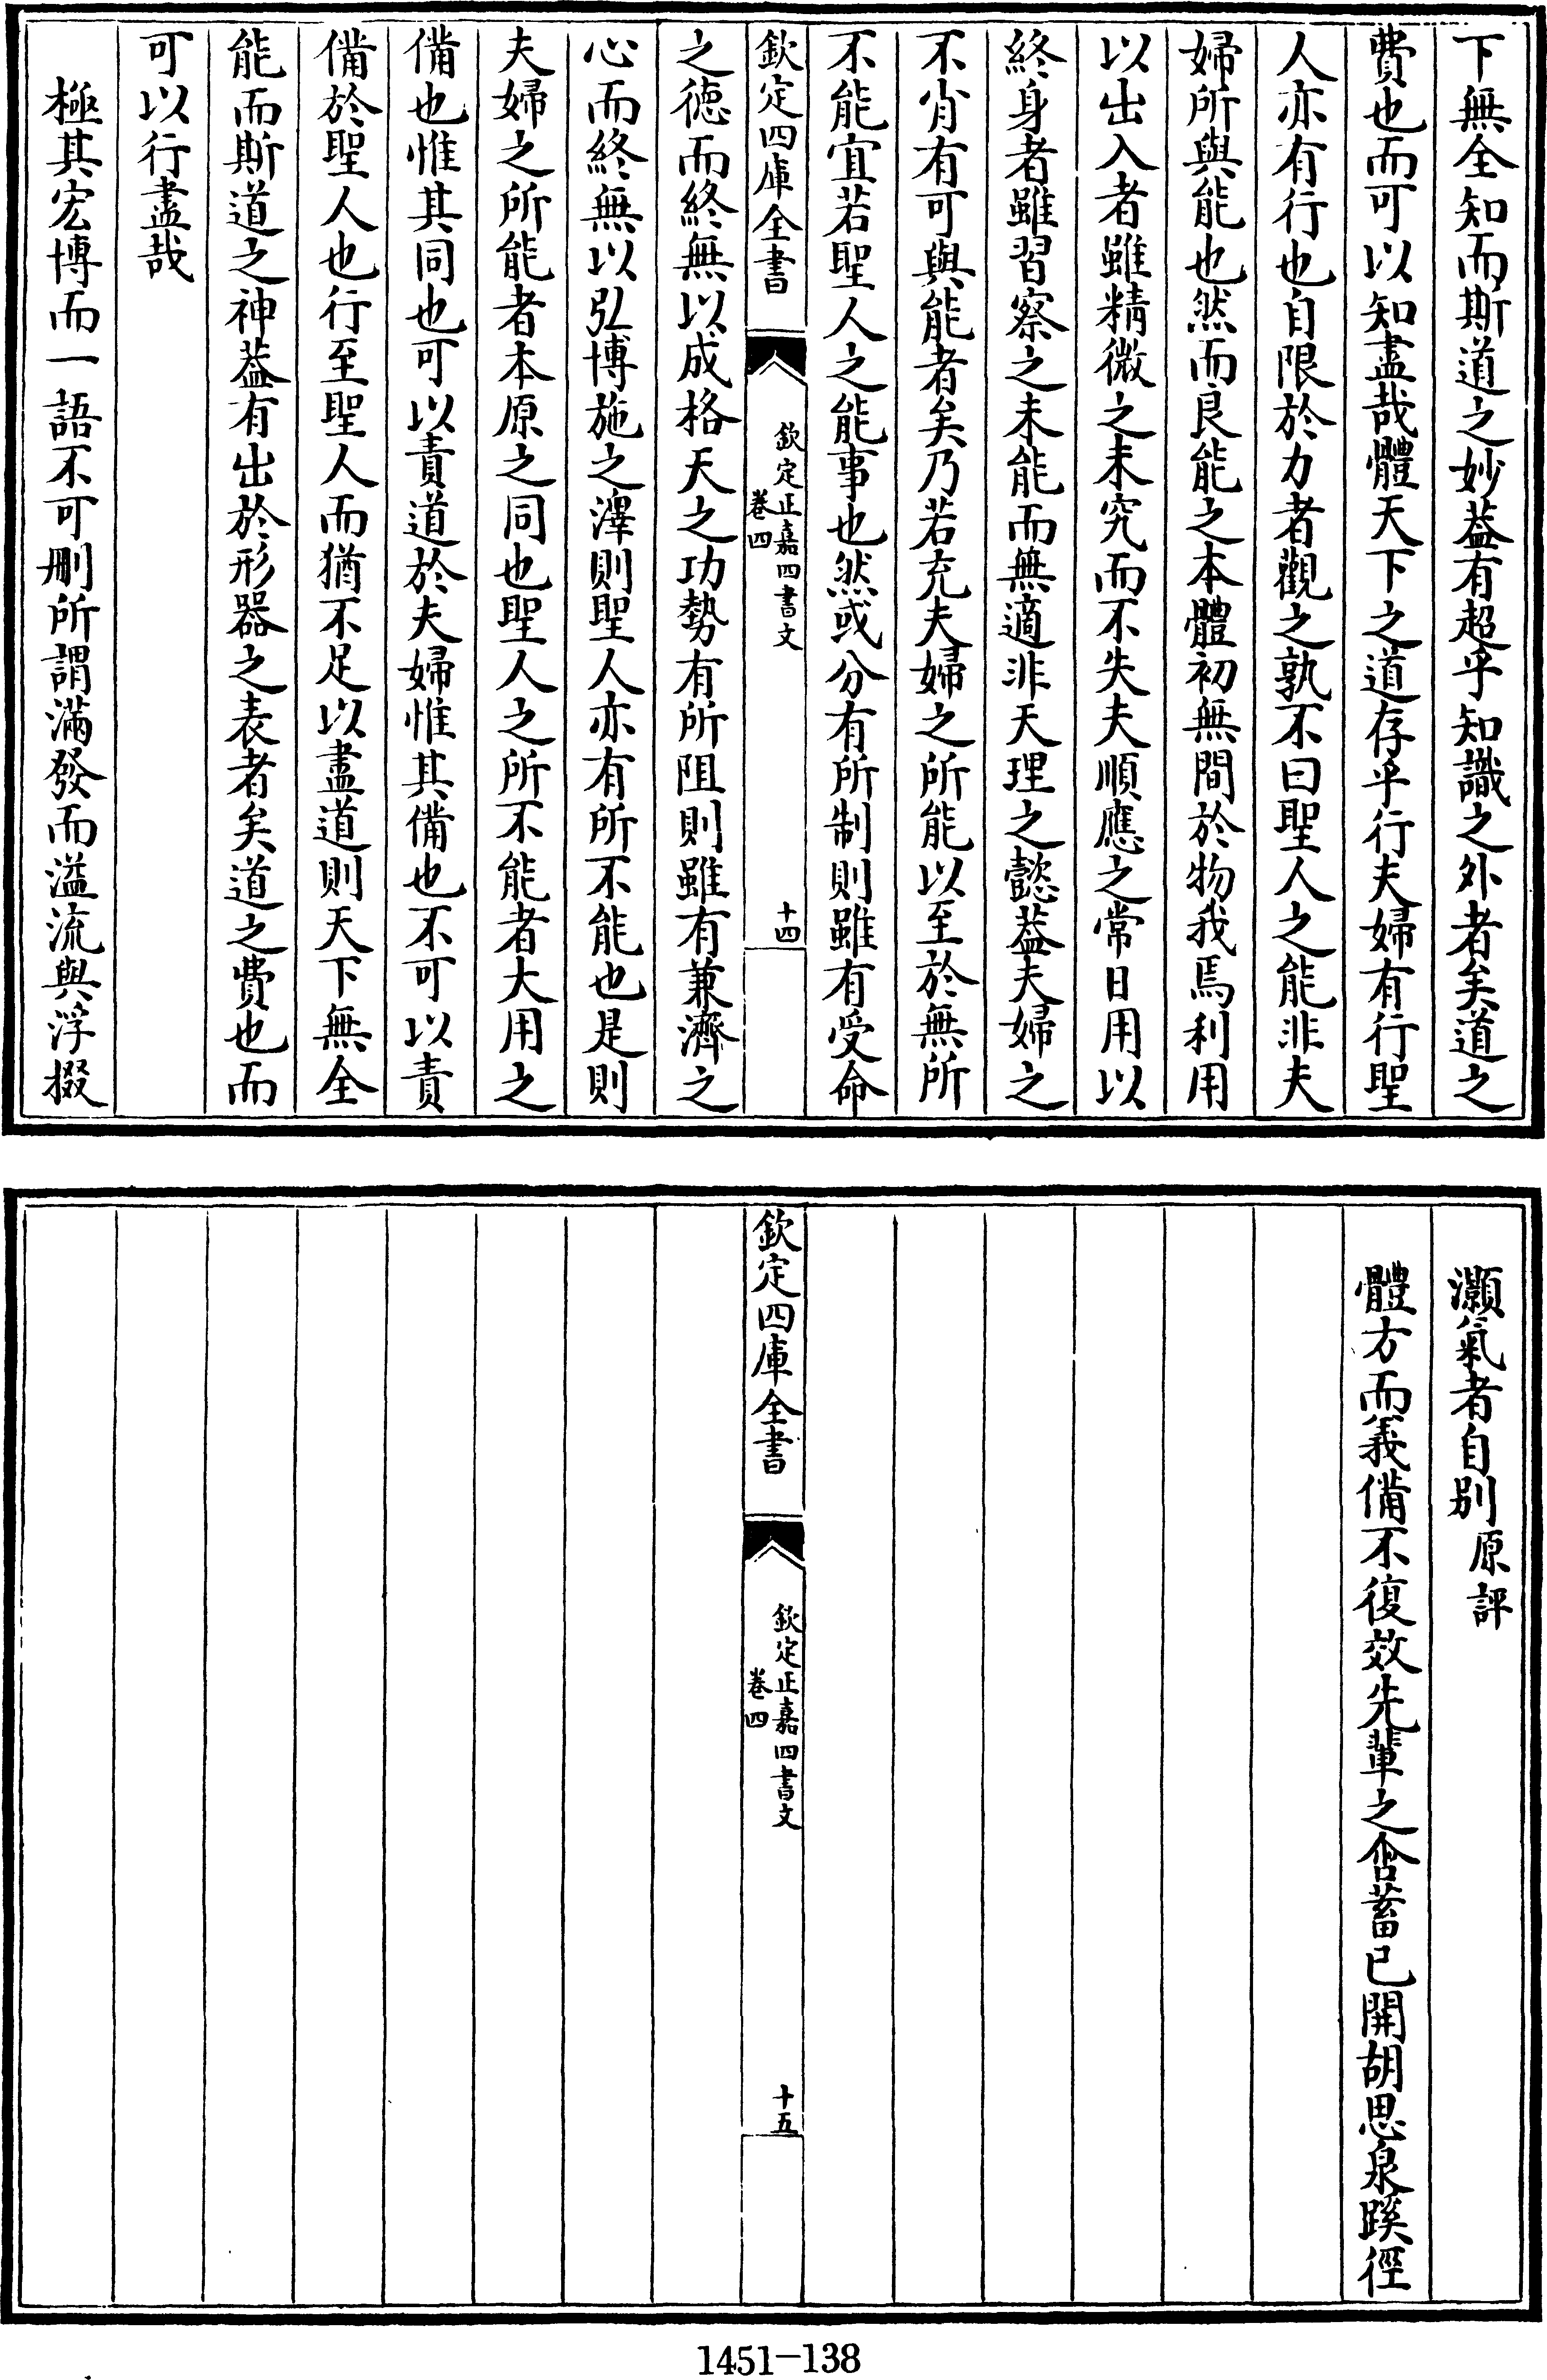 下無全知而斯道之妙葢有超乎知識之外者矣道之
費也而可以知盡哉體天下之道存乎行夫婦有行聖
人亦有行也自限於力者觀之孰不曰聖人之能非夫
婦所與能也然而良能之本體初無間於物我焉利用
以出入者雖精微之未究而不失夫順應之常日用以
終身者雖習察之未能而無適非天理之懿葢夫婦之
不肖有可與能者矣乃若充夫婦之所能以至於無所
不能宜若聖人之能事也然或分有所制則雖有受命
欽定四庫全書
欽定正嘉四書文
卷四
十四
之德而終無以成格天之功勢有所阻則雖有兼濟之
心而終無以弘博施之澤則聖人亦有所不能也是則
夫婦之所能者本原之同也聖人之所不能者大用之
備也惟其同也可以責道於夫婦惟其備也不可以責
備於聖人也行至聖人而猶不足以盡道則天下無全
能而斯道之神葢有出於形器之表者矣道之費也而
可以行盡哉
極其宏博而一語不可刪所謂滿發而溢流與浮掇
灝氣者自別原評
體方而義備不復效先輩之含蓄已開胡思泉蹊徑
欽定四庫全書
欽定正嘉四書文
卷四
十五
1451-138